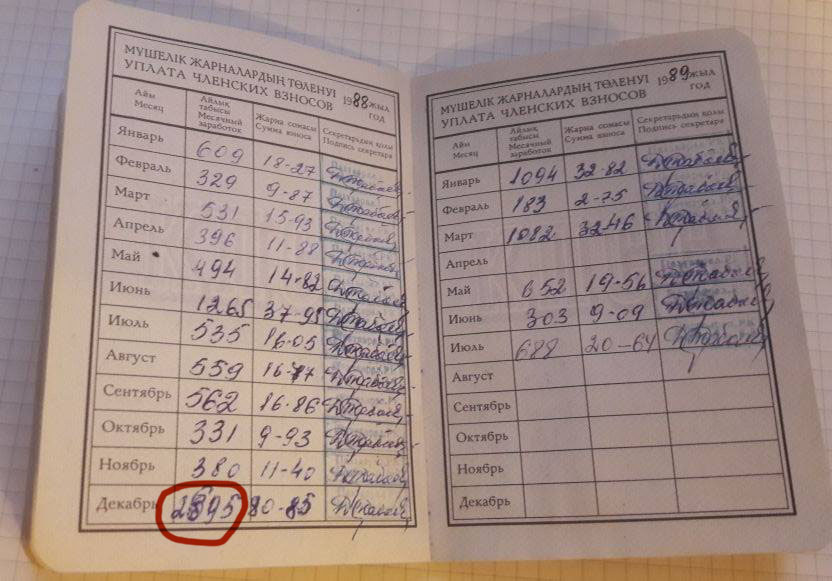 МҮШЕЛІК ЖАРНАЛАРДЫҢ ТӨЛЕНУІ 1988 ЖЫЛ
УПЛАТА ЧЛЕНСКИХ ВЗНОСОВ ГОД
Айы Месяц Айлық табысы Месячный заработок Жарна сомасы Сумма взноса Секретарьдың қолы Подпись секретаря
Январь 609 18-27
Февраль 329 9-87
Март 531 15-93
Апрель 396 11-88
Май 494 14-82
Июнь 1265 37-95
Июль 535 16-05
Август 559 16-77
Сентябрь 562 16-86
Октябрь 331 9-93
Ноябрь 380 11-40
Декабрь 2695 80-85
МҮШЕЛІК ЖАРНАЛАРДЫҢ ТӨЛЕНУІ 1989 ЖЫЛ
УПЛАТА ЧЛЕНСКИХ ВЗНОСОВ ГОД
Айы Месяц Айлық табысы Месячный заработок Жарна сомасы Сумма взноса Секретарьдың қолы Подпись секретаря
Январь 1094 32-82
Февраль 183 2-75
Март 1082 32-46
Апрель
Май 652 19-56
Июнь 303 9-09
Июль 688 20-64
Август
Сентябрь
Октябрь
Ноябрь
Декабрь